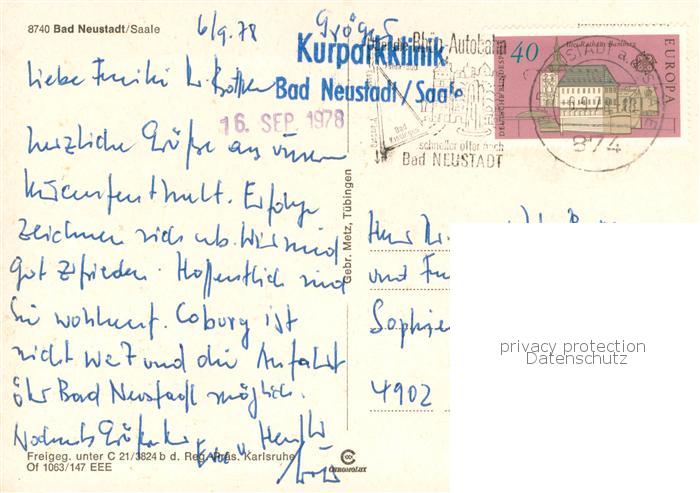 8740 Bad Neustadt/Saale
6/9. 78
Kurparkklinik
Bad Neustadt/Saale
16. SEP. 1978
über die Rhön-Autobahn
Bad Kissingen
schneller oder nach
Bad NEUSTADT
DEUTSCHE BUNDESPOST
40
EUROPA
874
Liebe Familie Dr.
herzliche Grüße aus unserem
Kuraufenthalt. Erfolge
zeichnen sich ab. Wir sind
gut zufrieden. Hoffentlich sind
Sie wohlauf. Coburg ist
nicht weit und die Anfahrt
über Bad Neustadt möglich.
Nochmals Grüße
Gebr. Metz, Tübingen
Herr Dr.
und
Sophie
4902
privacy protection
Datenschutz
Freigeg. unter C 21/3824 b d. Reg. Präs. Karlsruhe
Of 1063/147 EEE
CHROMOLUX